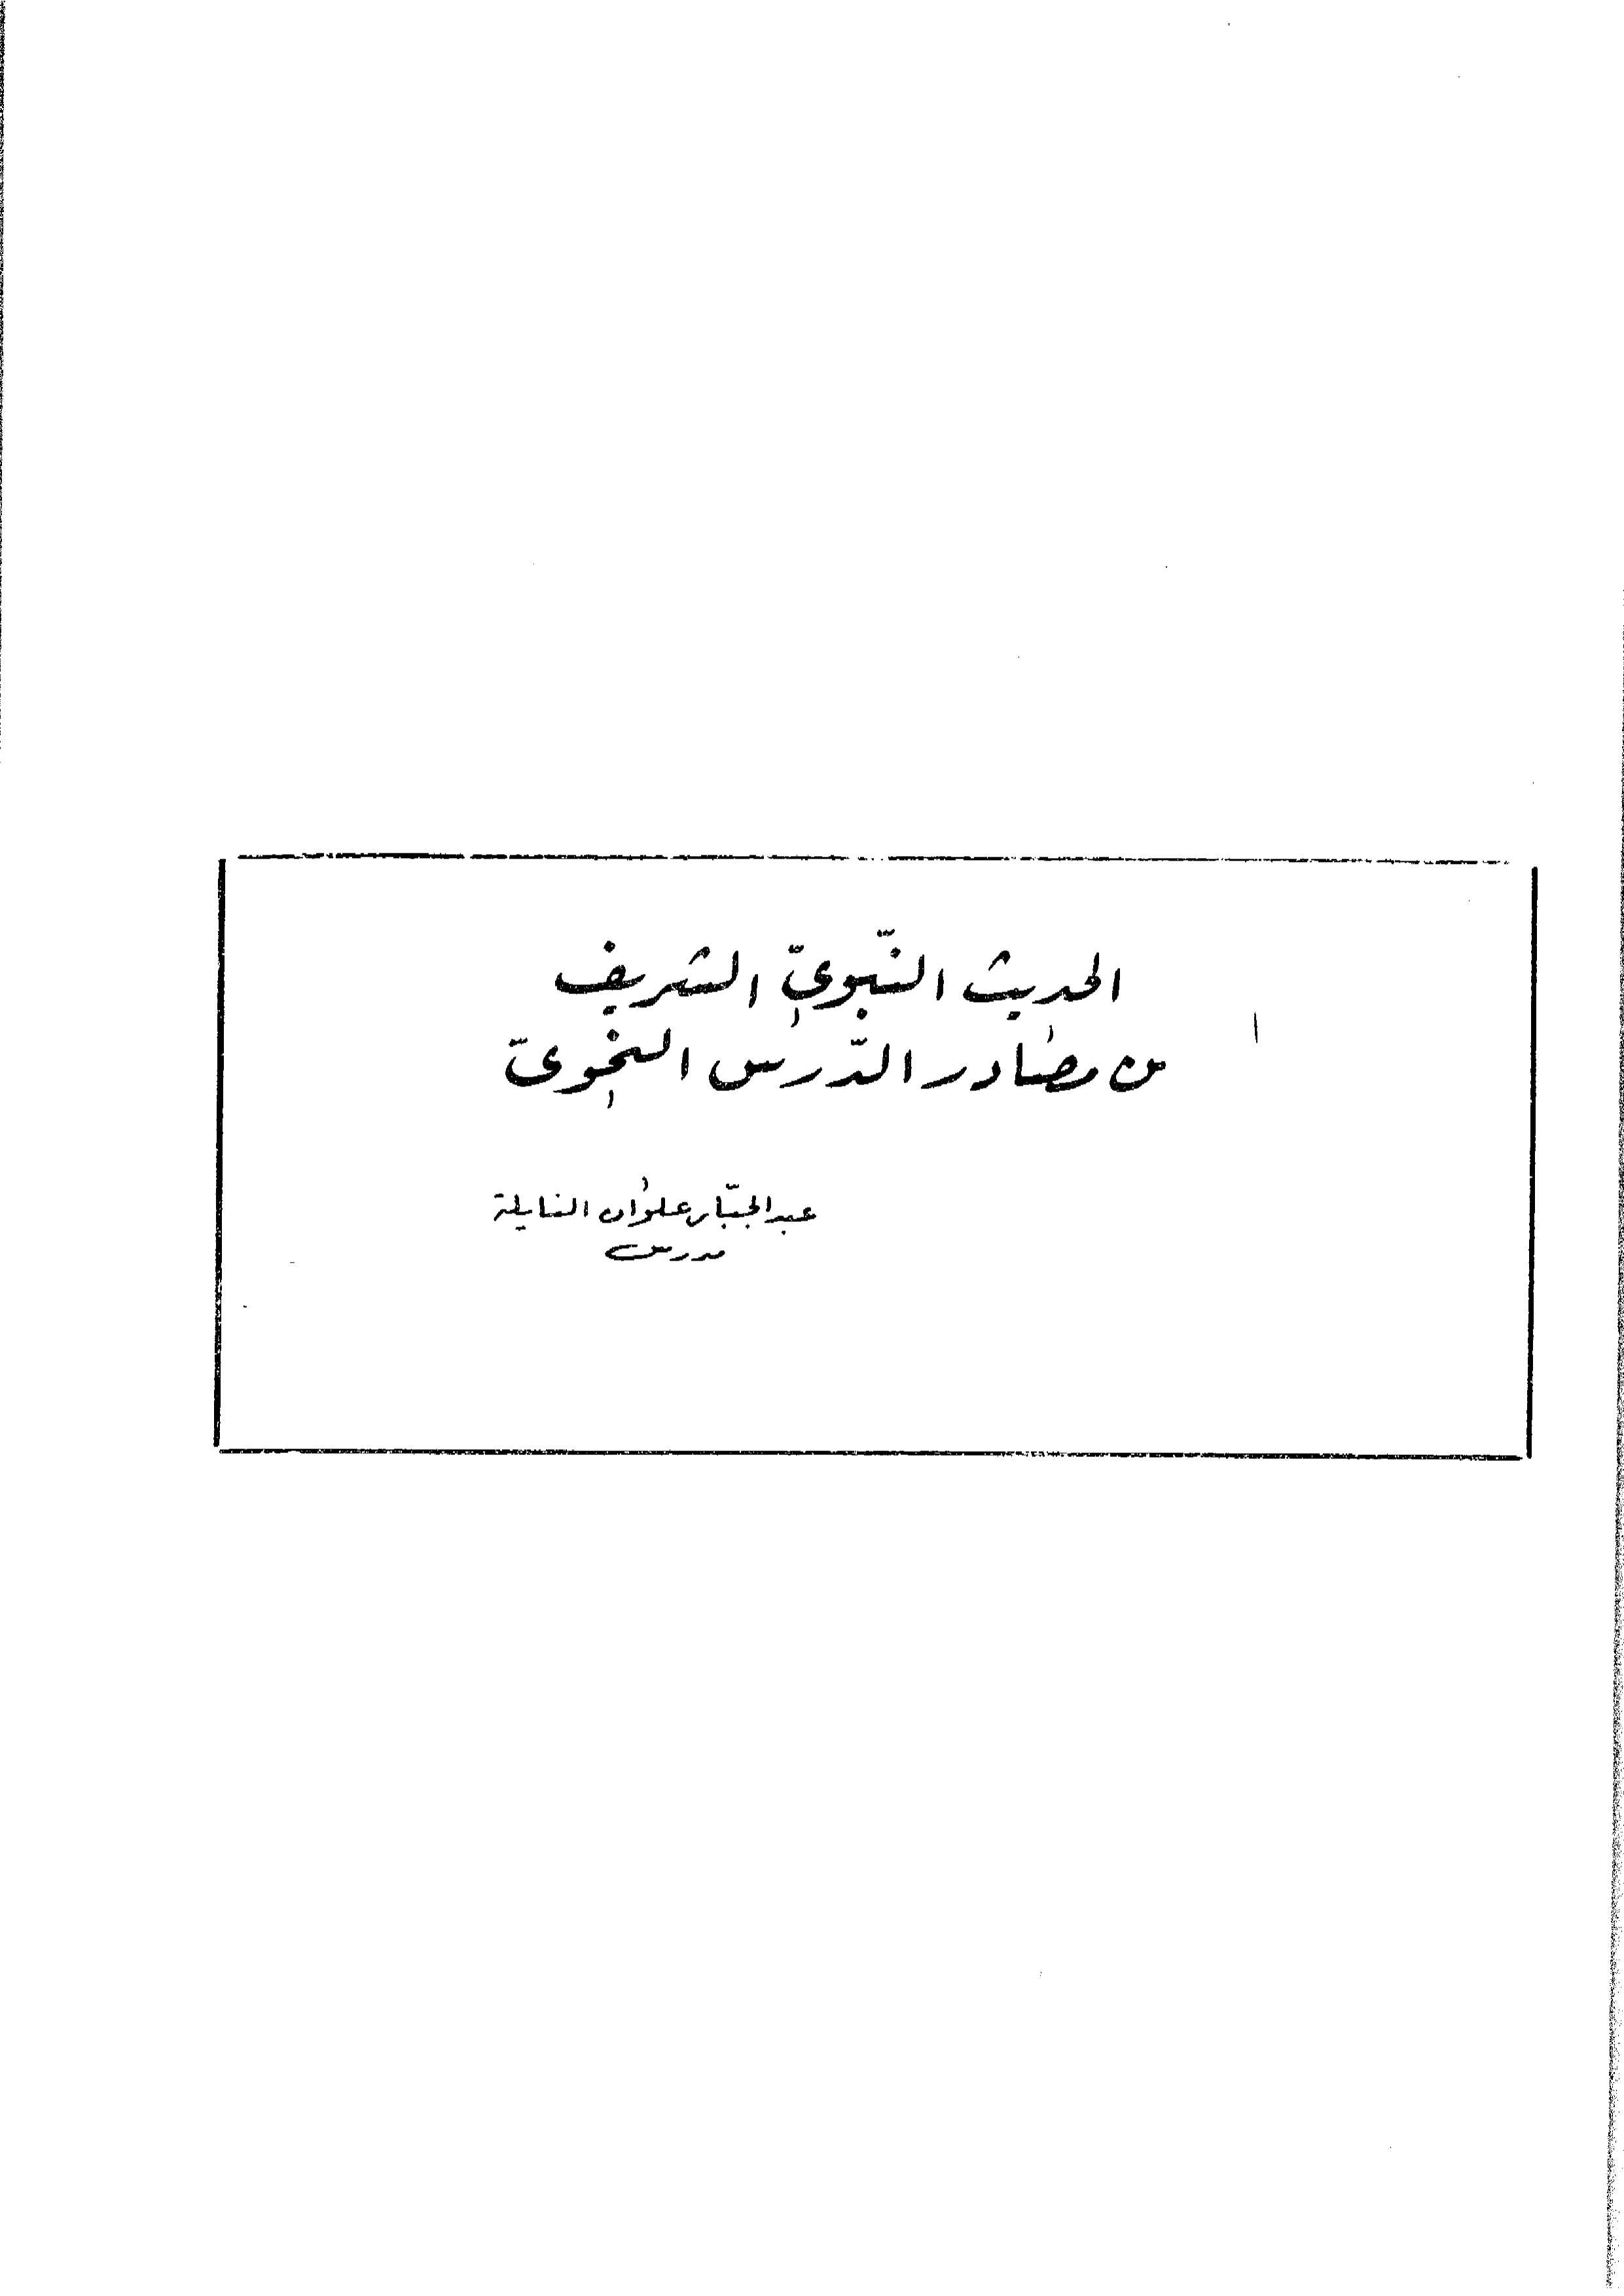 الحديث النّبويّ الشريف
من مصادر الدّرس النحويّ
عبد الجبّار علوان النايلة
مدرس